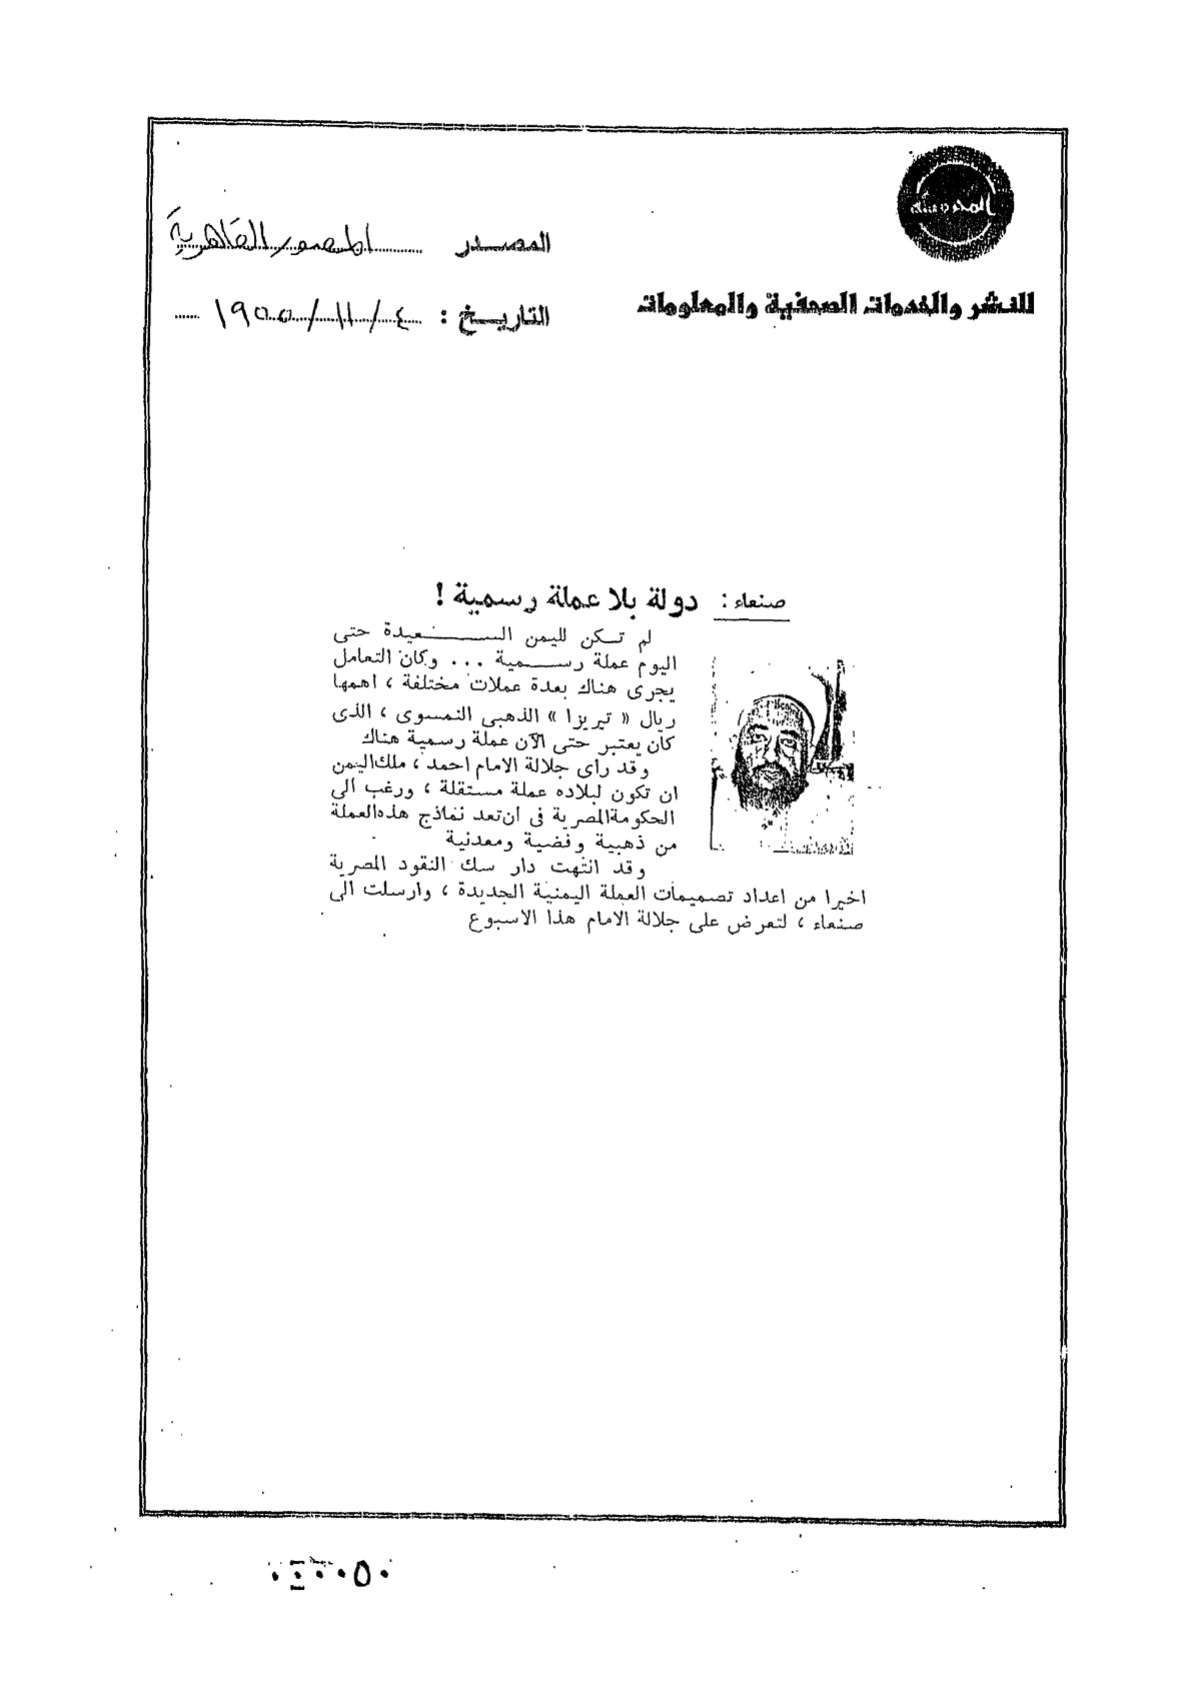 المحروسة
للنشر والخدمات الصحفية والمعلومات
المصدر المصور القاهرية
التاريخ : ٤ / ١١ / ١٩٥٥
صنعاء : دولة بلا عملة رسمية !
لم تكن لليمن السعيدة حتى
اليوم عملة رسمية ... وكان التعامل
يجرى هناك بعدة عملات مختلفة ، اهمها
ريال « تيريزا » الذهبى النمسوى ، الذى
كان يعتبر حتى الآن عملة رسمية هناك
وقد رأى جلالة الامام احمد ، ملك اليمن
ان تكون لبلاده عملة مستقلة ، ورغب الى
الحكومة المصرية فى ان تعد نماذج هذه العملة
من ذهبية وفضية ومعدنية
وقد انتهت دار سك النقود المصرية
اخيرا من اعداد تصميمات العملة اليمنية الجديدة ، وارسلت الى
صنعاء ، لتعرض على جلالة الامام هذا الاسبوع